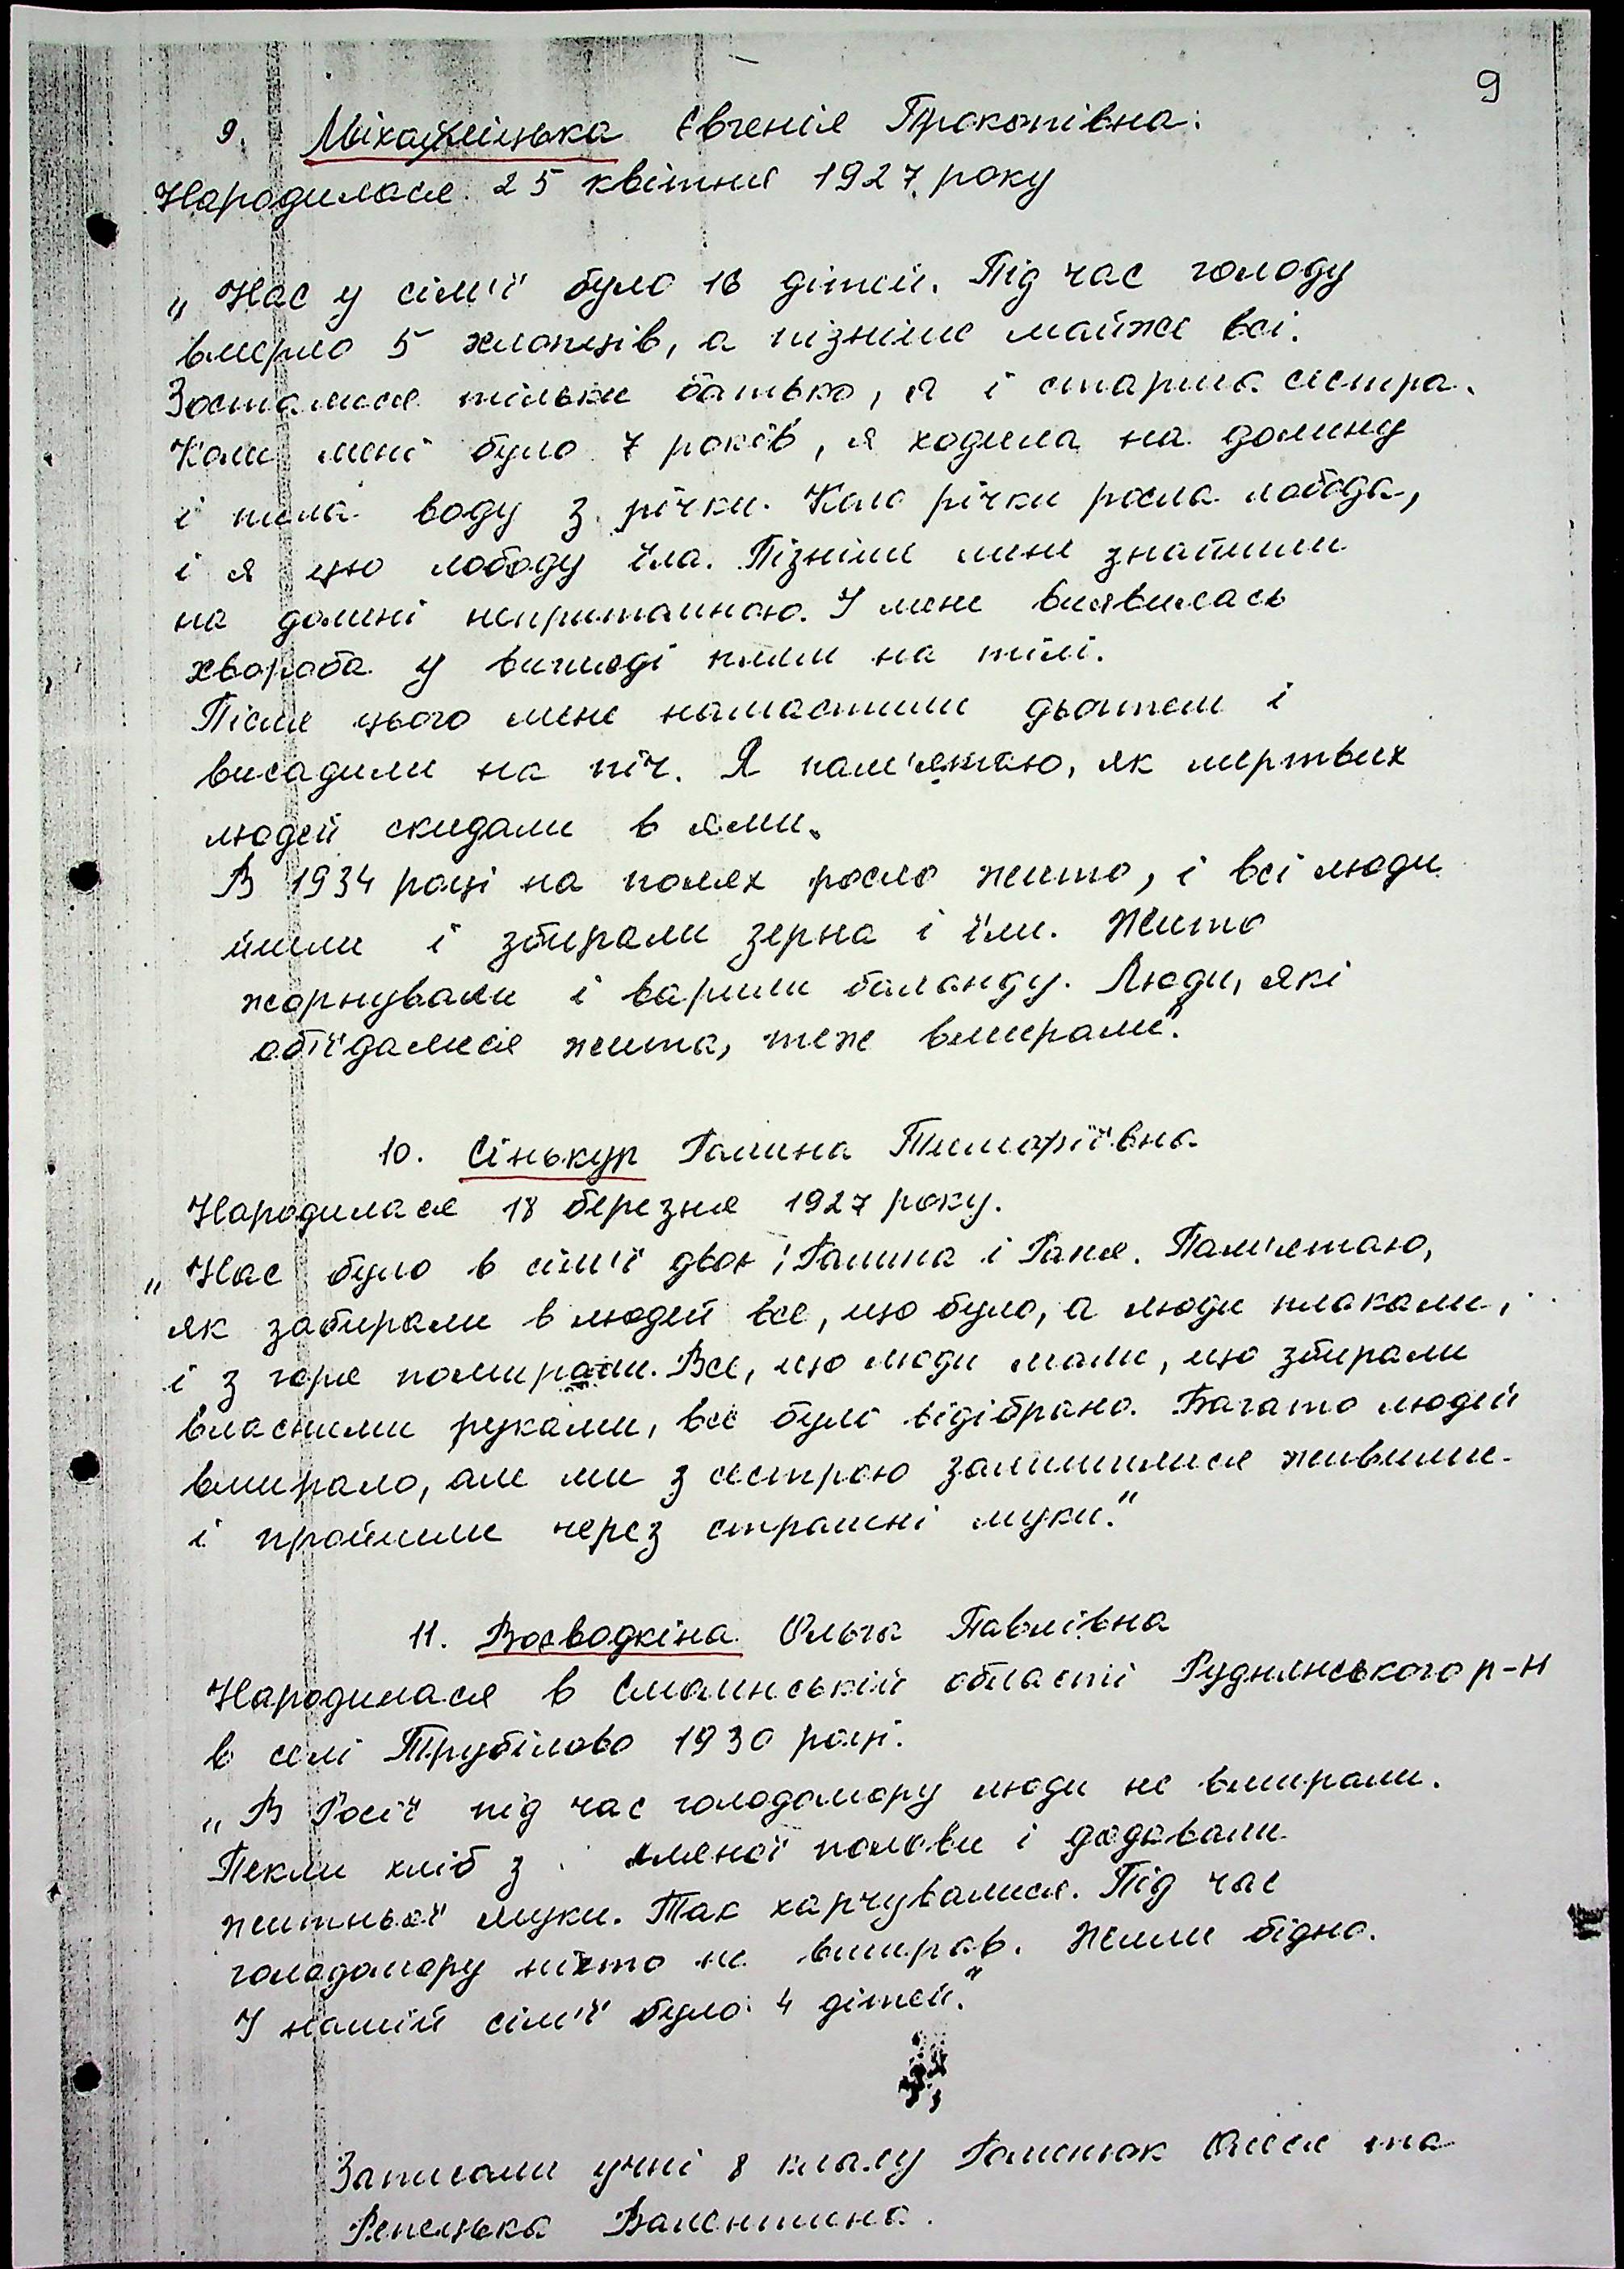 9
9. Міхальміцька Євгенія Прокопівна.
Народилася 25 квітня 1927 року
„Нас у сім'ї було 16 дітей. Під час голоду
вмерло 5 хлопців, а пізніше майже всі.
Зосталися тільки батько, я і старша сестра.
Коли мені було 7 років, я ходила на долину
і пила воду з річки. Коло річки росла лобода,
і я цю лободу їла. Пізніше мене знайшли
на долині непритомною. У мене виявилась
хвороба у вигляді плям на тілі.
Після цього мене намастили дьогтем і
висадили на піч. Я пам'ятаю, як мертвих
людей скидали в ями.
В 1934 році на полях росло жито, і всі люди
йшли і збирали зерна і їли. Жито
жорнували і варили баланду. Люди, які
об'їдалися жита, теж вмирали".
10. Сінькур Галина Тимофіївна
Народилася 18 березня 1927 року.
„Нас було в сім'ї двоє: Галина і Ганя. Пам'ятаю,
як забирали в людей все, що було, а люди плакали,
і з горя помирали. Все, що люди мали, що збирали
власними руками, все було відібрано. Багато людей
вмирало, але ми з сестрою залишилися живими
і пройшли через страшні муки."
11. Воєводкіна Ольга Павлівна
Народилася в Смоленській області Руднянського р-н
в селі Трубілово 1930 році.
„В Росії під час голодомору люди не вмирали.
Пекли хліб з лляної полови і додавали
житньої муки. Так харчувалися. Під час
голодомору ніхто не вмирав. Жили бідно.
У нашій сім'ї було 4 дітей."
Записали учні 8 класу Галенюк Олеся та
Репецька Валентина.